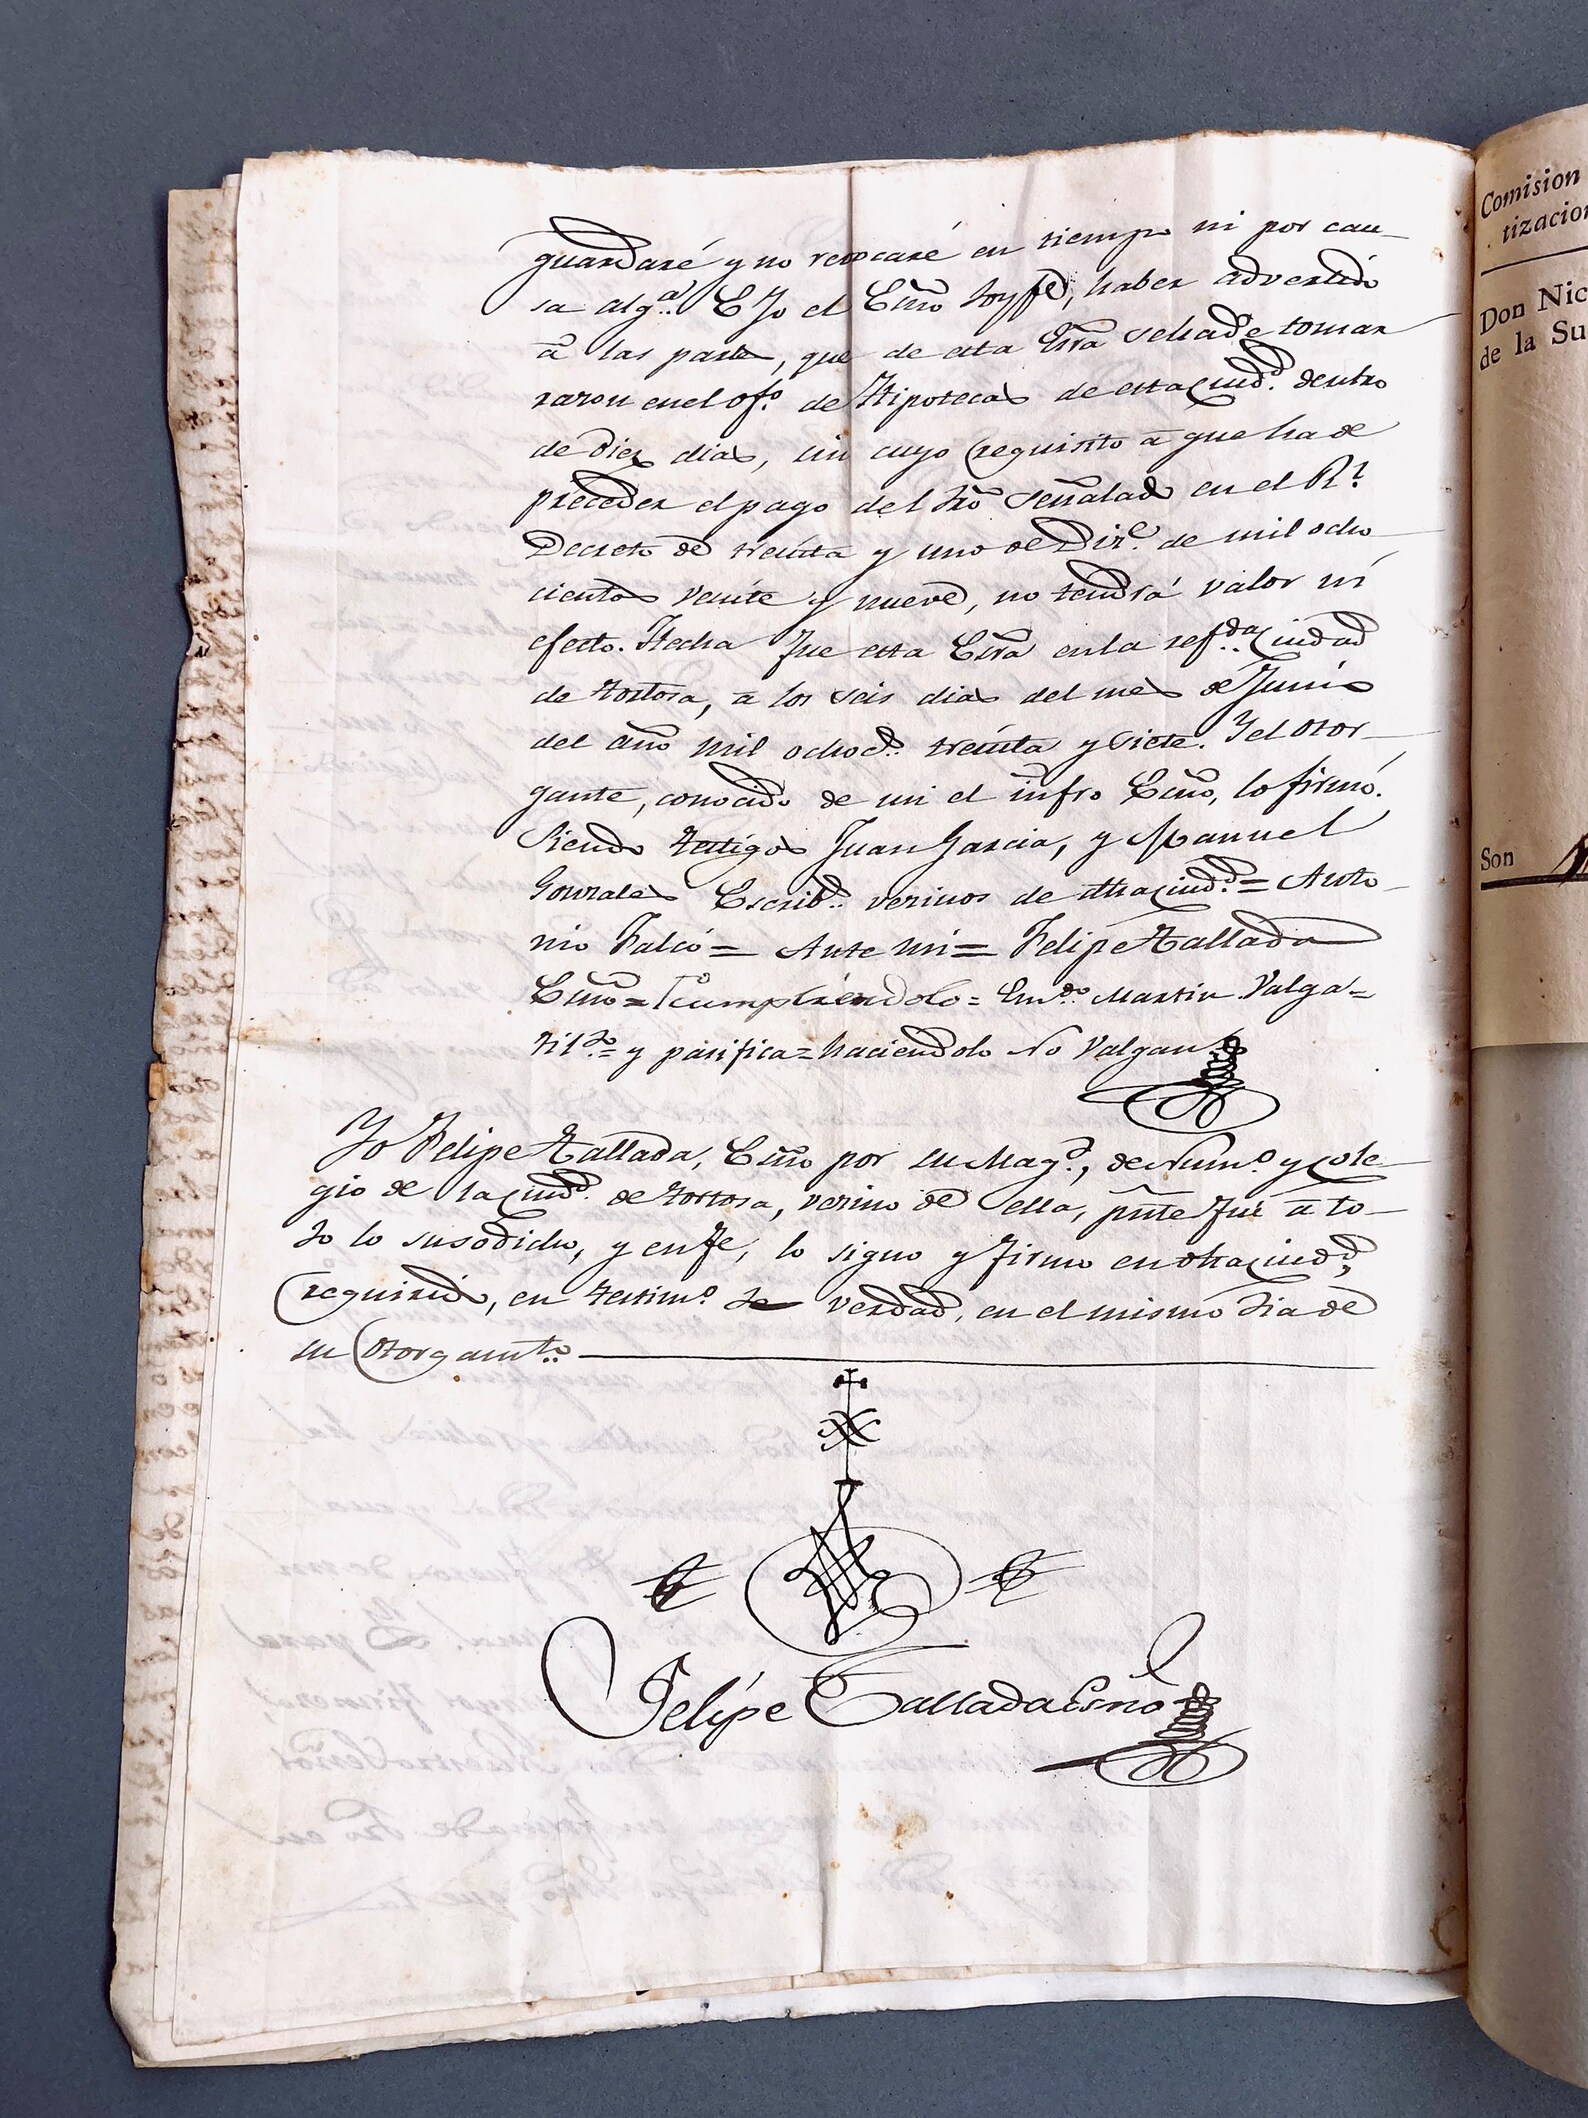 guardaré y no revocaré en tiempo ni por cau-
sa alg.ª E Yo el Esño doy fe, haber advertido
â las partes, que de esta Esra se ha de tomar
razon en el of.º de Hipotecas de esta Ciud.d dentro
de diez dias, sin cuyo requisito â que ha de
preceder el pago del dro señalado en el R.l
Decreto de treinta y uno de Dize. de mil ocho
cientos veinte y nueve, no tendrá valor ni
efecto. Hecha fue esta Esra en la refda. Ciudad
de Tortosa, â los seis dias del mes de Junio
del año mil ochocs. treinta y siete. Y el otor-
gante, conocido de mi el infro Esño, lo firmó.
Siendo testigos Juan Garcia, y Manuel
Gonzales Escrib.s vecinos de dha Ciud.d = Anto-
nio Falcó = Ante mi = Felipe Tallada
Esño = cumpliendolo = Emdo. Martin Valga =
y pasifica = haciendolo No Valgan
Yo Felipe Tallada, Esño por su Mag.d, de Num.º y Cole-
gio de la Ciud.d de Tortosa, vecino de ella, pnte fui â to-
do lo susodicho, y en fe, lo signo y firmo en dha Ciud.d,
requirido, en testim.º de verdad, en el mismo dia de
su otorgamto.
Felipe Tallada Esño
Comision
tizacion
Don Nic
de la Su
Son